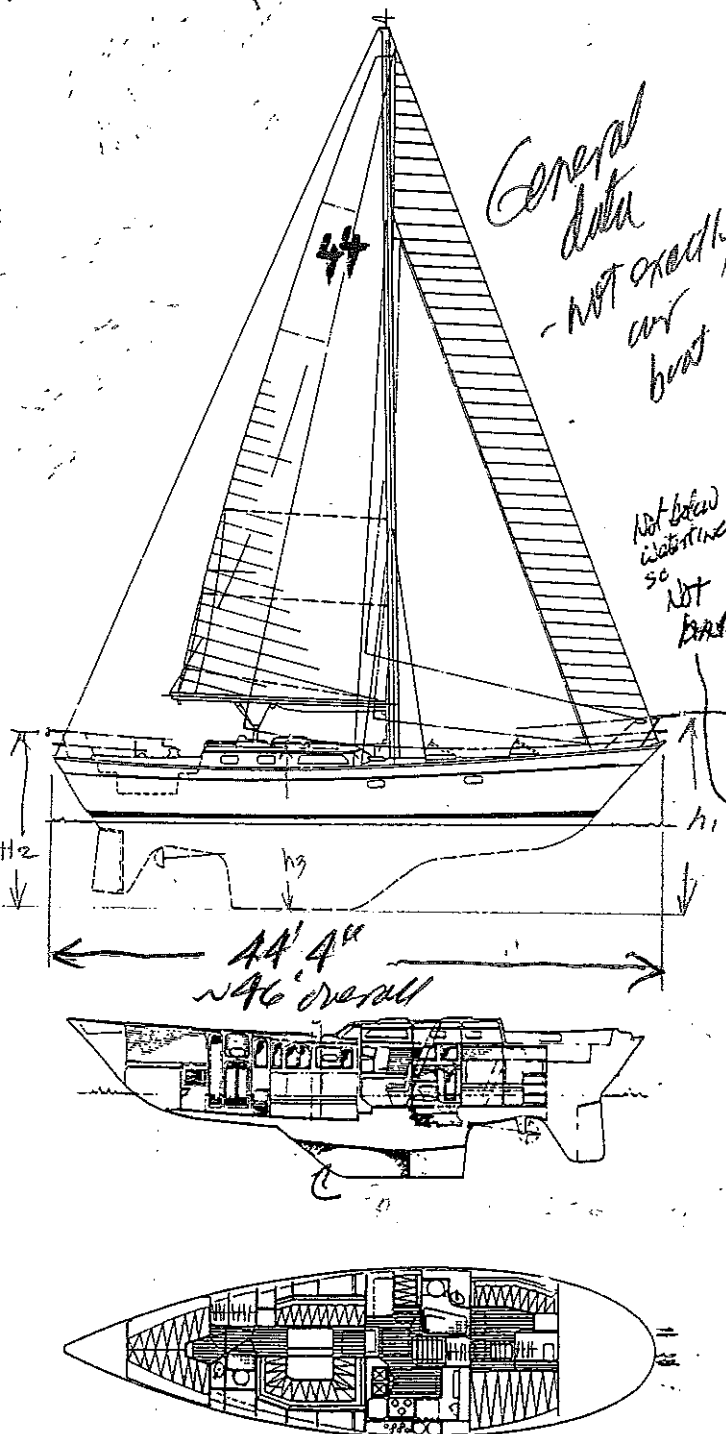 General
data
- not exactly
our
boat
44
Not below
waterline
so
Not
h1
H2
h3
44' 4"
~46' overall